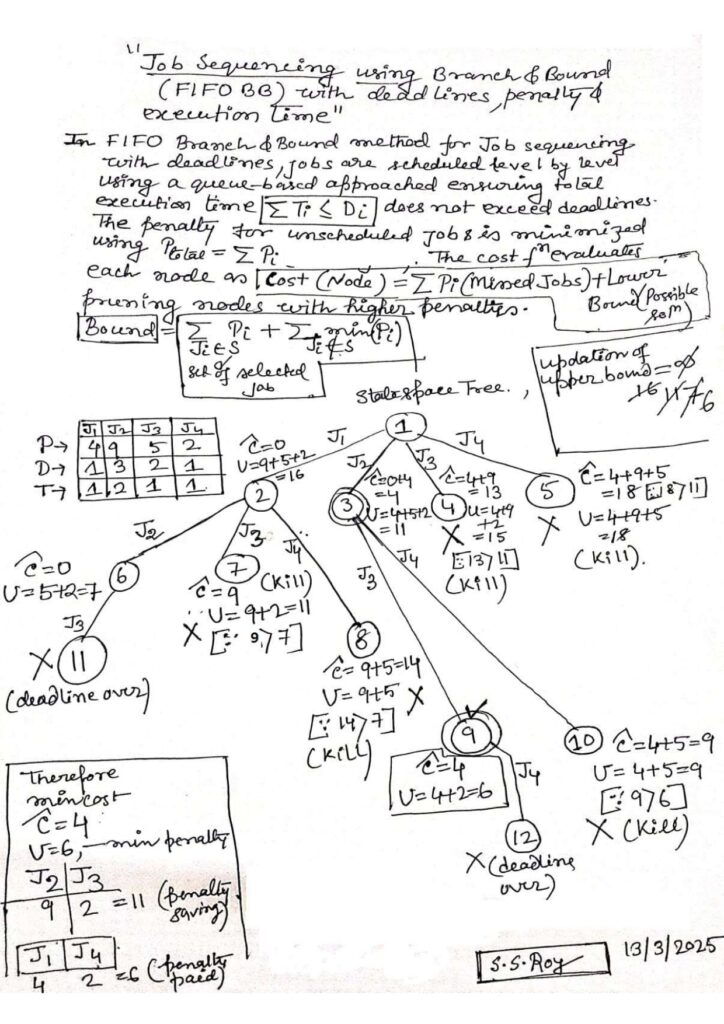 "Job Sequencing using Branch & Bound
(FIFO BB) with deadlines, penalty &
execution time"
In FIFO Branch & Bound method for Job sequencing
with deadlines, jobs are scheduled level by level
using a queue-based approached ensuring total
execution time ΣTi ≤ Di does not exceed deadlines.
The penalty for unscheduled jobs is minimized
using Ptotal = ΣPi. The cost fⁿ evaluates
each node as Cost (Node) = ΣPi (Missed Jobs) + Lower
Bound (Possible solⁿ)
pruning nodes with higher penalties.
Bound = Σ Pi + Σ min(Pi)
Ji∈S Ji∉S
set of selected
job
updation of
upper bound = ∞
16 11 7 6
State space Tree.,
J1 J2 J3 J4
P→ 4 9 5 2
D→ 1 3 2 1
T→ 1 2 1 1
1
J1
J2
J3
J4
2
Ĉ=0
U=9+5+2
=16
3
Ĉ=0+4
=4
U=4+5+2
=11
4
Ĉ=4+9
=13
U=4+9
+2
=15
X
[∵13>11]
(Kill)
5
Ĉ=4+9+5
=18 [∵18>11]
U=4+9+5
=18
X
(Kill).
J2
J3
J4
6
Ĉ=0
U=5+2=7
7
(Kill)
Ĉ=9
∵ U=9+2=11
X [∵ 9>7]
8
Ĉ=9+5=14
U=9+5 X
[∵14>7]
(Kill)
J3
J4
9
Ĉ=4
U=4+2=6
10
Ĉ=4+5=9
U=4+5=9
[∵9>6]
X (Kill)
J3
X 11
(deadline over)
J4
12
X (deadline
over)
Therefore
min cost
Ĉ=4
U=6, —min penalty
J2 J3
9 2 =11 (penalty
saving)
J1 J4
4 2 =6 (penalty
paid)
S.S.Roy
13/3/2025